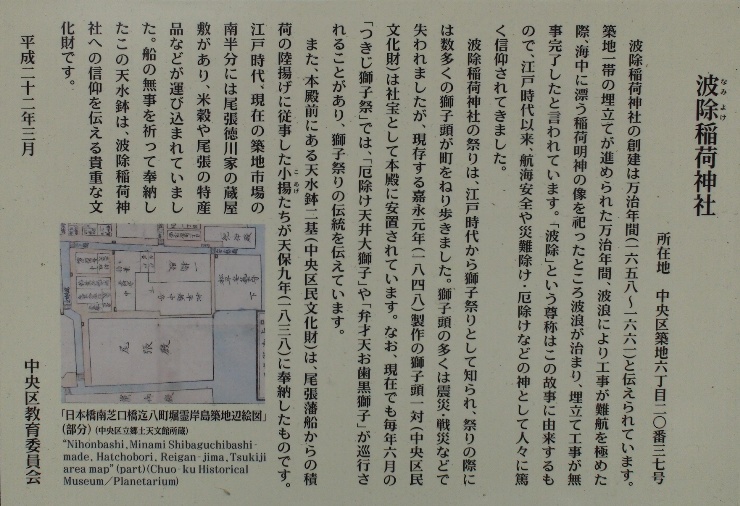 波除稲荷神社
なみよけ
所在地 中央区築地六丁目二〇番三七号
波除稲荷神社の創建は万治年間(一六五八〜一六六一)と伝えられています。
築地一帯の埋立てが進められた万治年間、波浪により工事が難航を極めた
際、海中に漂う稲荷明神の像を祀ったところ波浪が治まり、埋立て工事が無
事完了したと言われています。「波除」という尊称はこの故事に由来するも
ので、江戸時代以来、航海安全や災難除け・厄除けなどの神として人々に篤
く信仰されてきました。
波除稲荷神社の祭りは、江戸時代から獅子祭りとして知られ、祭りの際に
は数多くの獅子頭が町をねり歩きました。獅子頭の多くは震災・戦災などで
失われましたが、現存する嘉永元年(一八四八)製作の獅子頭一対(中央区民
文化財)は社宝として本殿に安置されています。なお、現在でも毎年六月の
「つきじ獅子祭」では、「厄除け天井大獅子」や「弁才天お歯黒獅子」が巡行さ
れることがあり、獅子祭りの伝統を伝えています。
また、本殿前にある天水鉢二基(中央区民文化財)は、尾張藩船からの積
荷の陸揚げに従事した小揚たちが天保九年(一八三八)に奉納したものです。
こあげ
江戸時代、現在の築地市場の
南半分には尾張徳川家の蔵屋
敷があり、米穀や尾張の特産
品などが運び込まれていまし
た。船の無事を祈って奉納し
たこの天水鉢は、波除稲荷神
社への信仰を伝える貴重な文
化財です。
平成二十二年三月
中央区教育委員会
尾張殿
「日本橋南芝口橋迄八町堀霊岸島築地辺絵図」
(部分)(中央区立郷土天文館所蔵)
"Nihonbashi,Minami Shibaguchibashi-
made, Hatchobori, Reigan-jima, Tsukiji
area map" (part)(Chuo-ku Historical
Museum/Planetarium)